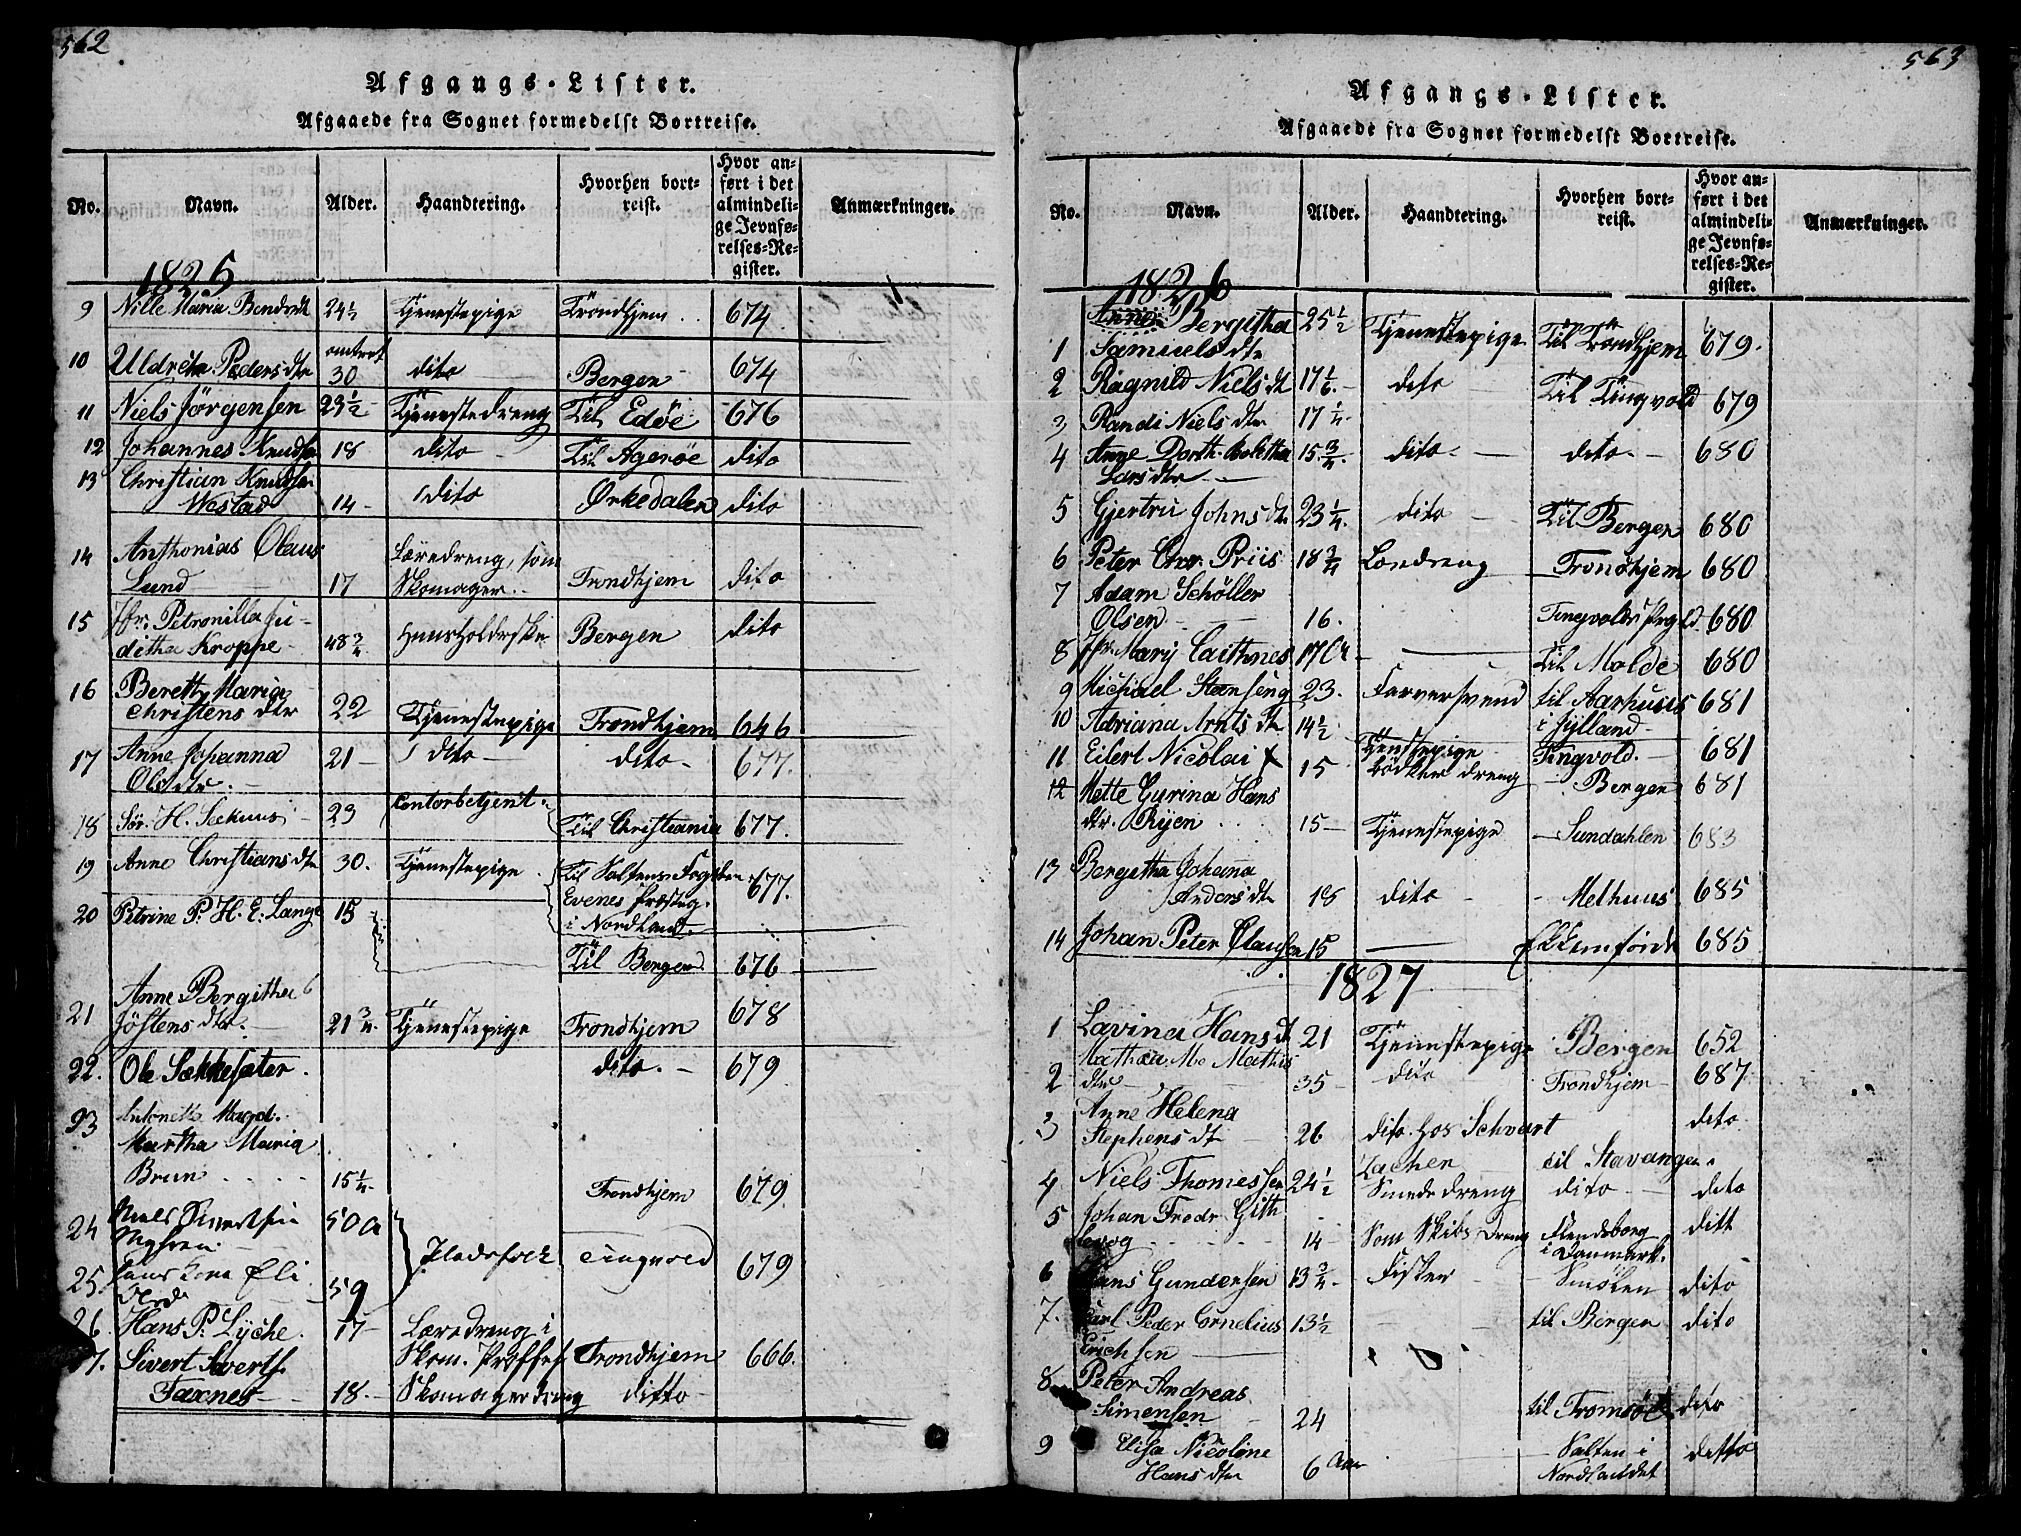 562
Afgangs-Lister.
Afgaaede fra Sognet formedelst Bortreise.
No. Navn. Alder. Haandtering. Hvorhen bortreist. Hvor anført i det almindelige Jevnførelses-Register. Anmærkninger.
1825
9 Nille Maria Bendsdtr 24½ Tjenestepige Trondhjem 674
10 Uldricha Peders dtr omtrent 30 dito Bergen 674
11 Niels Jörgensen 23½ Tjenestedreng Til Edöe 676
12 Johannes Knudsen 18 dito Til Ageröe dito
13 Christian Knudsen
Westad 14 dito Ørkedalen dito
14 Anthonias Olaus Læredreng, som
Lund 17 Skomager Trondhjem dito
15 Jfr. Petronilla Ju-
ditha Kroppe 48¾ Huusholderske Bergen dito
16 Berett Maria
Christens dtr 22 Tjenestepige Trondhjem 646
17 Anne Johanna 21 dito dito 677.
Ols dtr.
18 Sör. H. 23 Contorbetjent Til Christiania 677.
19 Anne Christians dtr 30. Tjenestepige Til Saltens Fogderi
Evenes Præsteg. 677.
i Nordland.
20 Petrine P. H. E. Lange 15
Til Bergen 676
Anne Bergitha
21 Jöstens dtr. 21¾. Tjenestepige Trondhjem 678
22. Ole Sækkesæter. dito. 679
23 Antonette Magd.
Martha Maria
Brun 15¼. Trondhjem 679
24 Niels Sivertsen 50 a
Myhren Pladsfolk Tingvold 679
25. Hans Kone Eli
59
26 Hans P. Lyche. 17 Læredreng i
Skom. Prof. Trondhjem 666.
27. Sivert Siverts.
Faxnes 18. Skomagerdreng ditto
563
Afgangs-Lister.
Afgaaede fra Sognet formedelst Bortreise.
No. Navn. Alder. Haandtering. Hvorhen bortreist. Hvor anført i det almindelige Jevnførelses-Register. Anmærkninger.
1826
Anne Bergitha 25½ Tjenestepige Til Trondhjem 679.
1 Samuels dtr
2 Ragnild Niels dt 17 dito Til Tingvold 679
3 Randi Niels dtr 17¼
4 Anne Dorth. Bolitha 15.¾. dito dito 680
Lars dtr
5 Gjertru Johns dtr 23¼. dito Til Bergen 680
6 Peter Chr. Priis 18¾ Londreng Trondhjem 680
7 Adam Schöller
Olsen 16. Tingvolds Prgld. 680
8 Jfr. Mary Caithnes 17 Til Molde 680
9 Michael Stenseng 23. Farversvend til Aarhuus 681
i Jylland
10 Adriana Arnts dtr 14½ Tjenstepige Tingvold. 681
11 Eilert Nicolai 15 Bödker dreng Bergen 681
12 Mette Gurina Hans
dtr. Rÿen 15 Tjenestepige Sundahlen 683
13 Bergitha Johanna
Anders dtr 18 dito Melhuus 685
14 Johan Peter Clausen 15 Ekkernförde 685
1827
1 Lavina Hans dt 21 Tjenestepige Bergen 652
Mathea Mo Mathis
2 dtr 35 dito Trondhjem 687
Anne Helena
3 Stephens dt 26 dito hos Schvart dito
Zachen til Stavanger
4 Niels Thomessen 24½ Smede dreng dito dito
5 Johan Fredr. Gith
14 Som Skibs Dreng Flendsborg
i Danmark. ditt
6 Hans Gundersen 13¾. Fisker Smölen dito
7. Carl Peder Cornelius 13½ til Bergen dito
Erichsen
8 Peter Andreas
Simensen 24 til Tromsöe dito
9 Elisa Nicoline Salten i ditto
Hans dtr 6 Aar Nordlandet